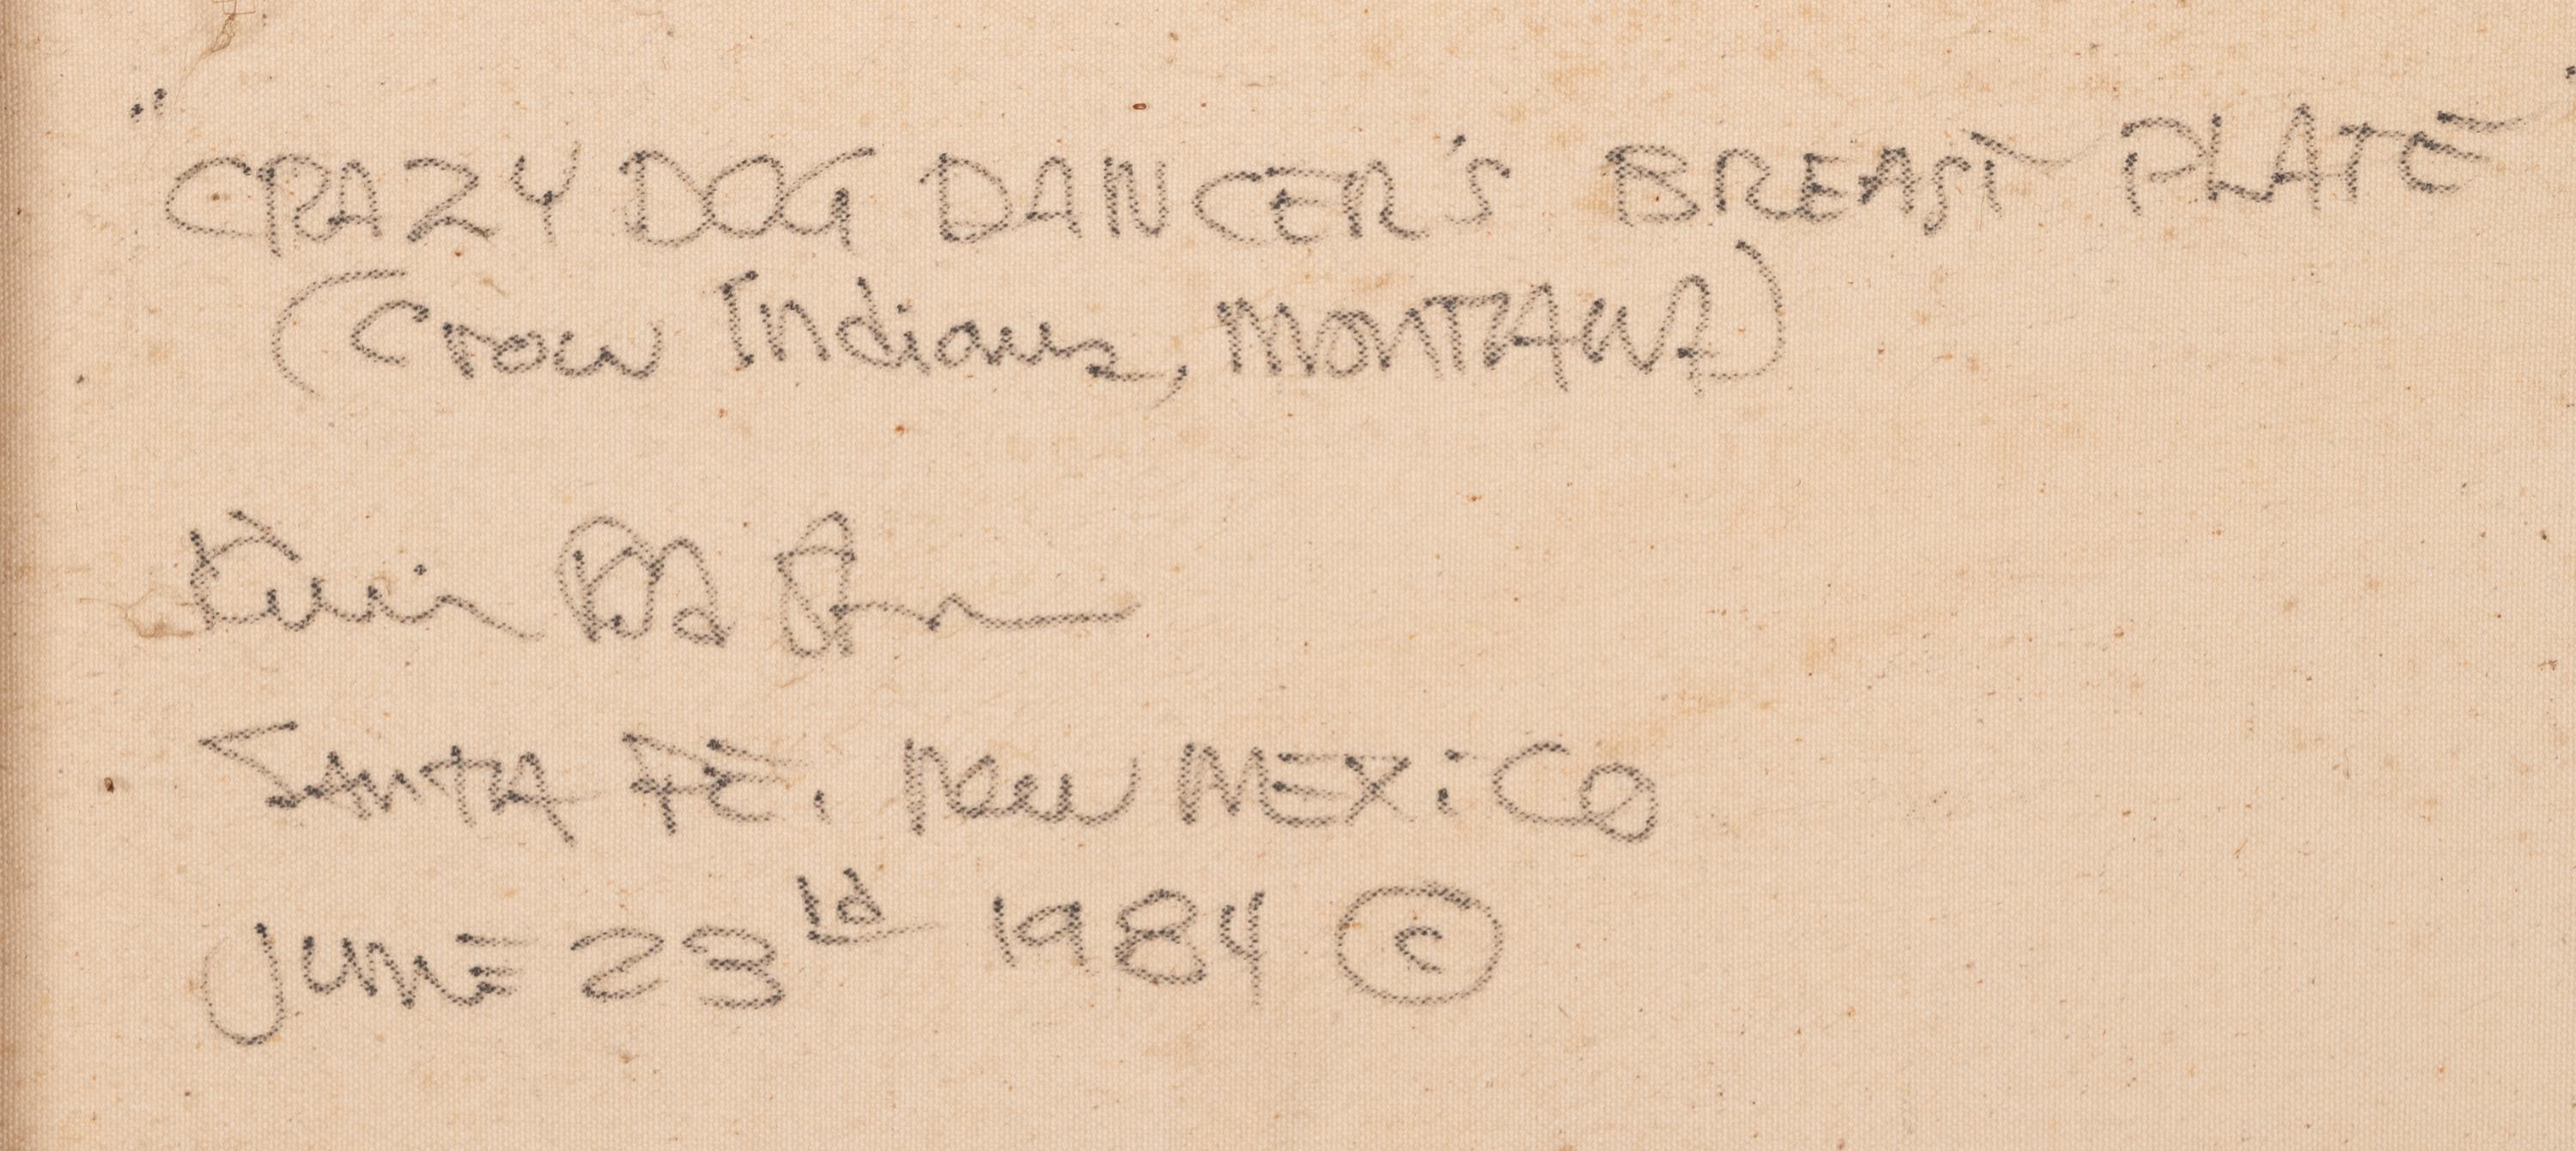 "CRAZY DOG DANCER'S BREAST PLATE"
(Crow Indians, MONTANA)
Kevin Red Star
SANTA FE, New MEXiCO
JUNE 23rd 1984 ©